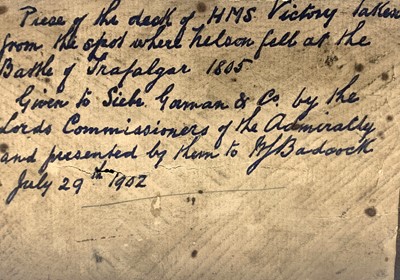 Piese of the deck of HMS Victory taken
from the spot where Nelson fell at the
Battle of Trafalgar 1805
Given to Siebe Gorman & Co. by the
Lords Commissioners of the Admiralty
and presented by them to Badcock
July 29th 1902